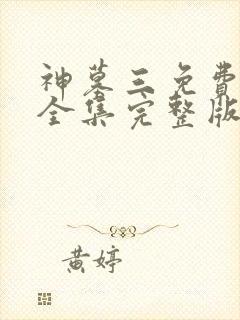 神墓三免費
全集完整版
黃婷